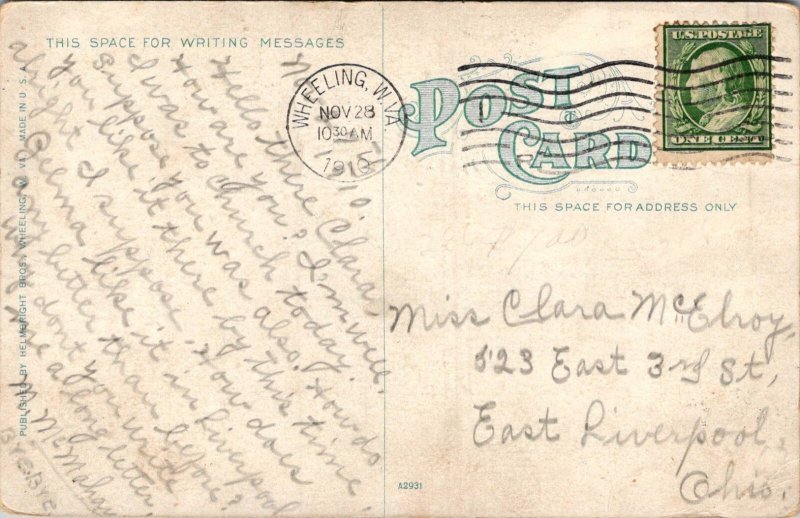 THIS SPACE FOR WRITING MESSAGES
Hello there Clara,
How are you? I'm well.
I was to Church today.
Suppose you was also. How do
you like it there by this time
alright I suppose. How does
Selma like it in Liverpool
any better than before?
Why dont you write
me a long letter.
M. McMahan
Bye Bye
PUBLISHED BY HELMBRIGHT BROS. WHEELING, W. VA. MADE IN U. S. A.
WHEELING, W. VA.
NOV 28
10 30 AM
1910
POST CARD
U.S. POSTAGE
ONE CENT
THIS SPACE FOR ADDRESS ONLY
Miss Clara McElroy,
523 East 3rd St,
East Liverpool,
Ohio.
A2931